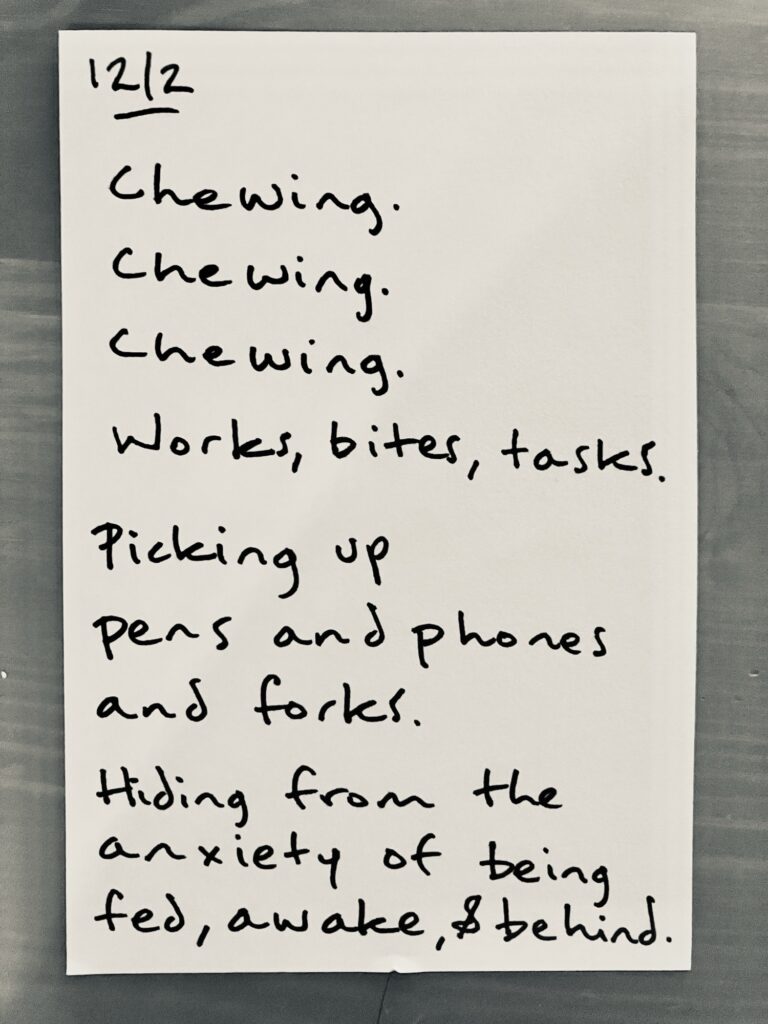 12/2
Chewing.
Chewing.
Chewing.
Works, bites, tasks.
Picking up
pens and phones
and forks.
Hiding from the
anxiety of being
fed, awake, & behind.